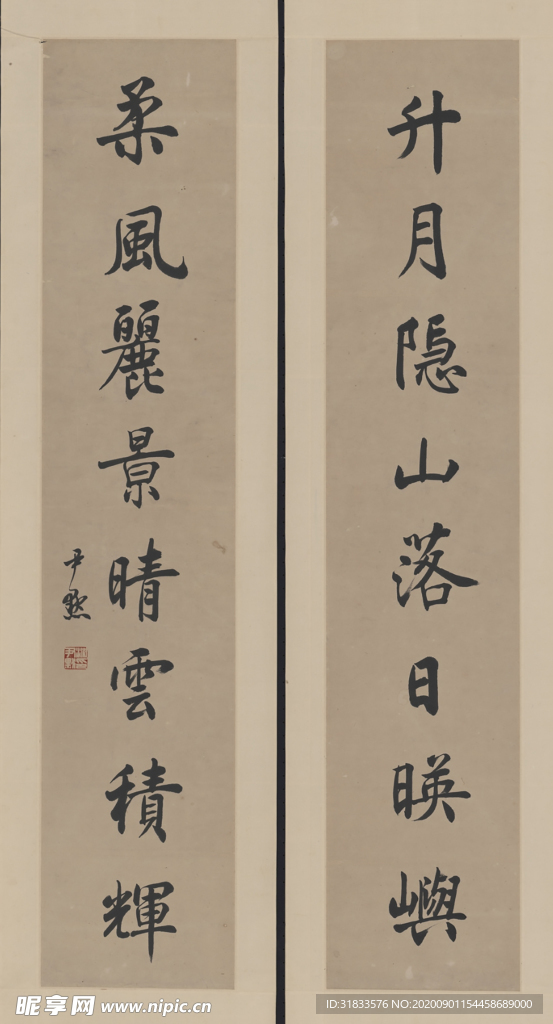 升月隐山落日暎嶼
柔風麗景晴雲積輝
尹默
昵享网 www.nipic.cn
ID:31833576 NO:20200901154458689000